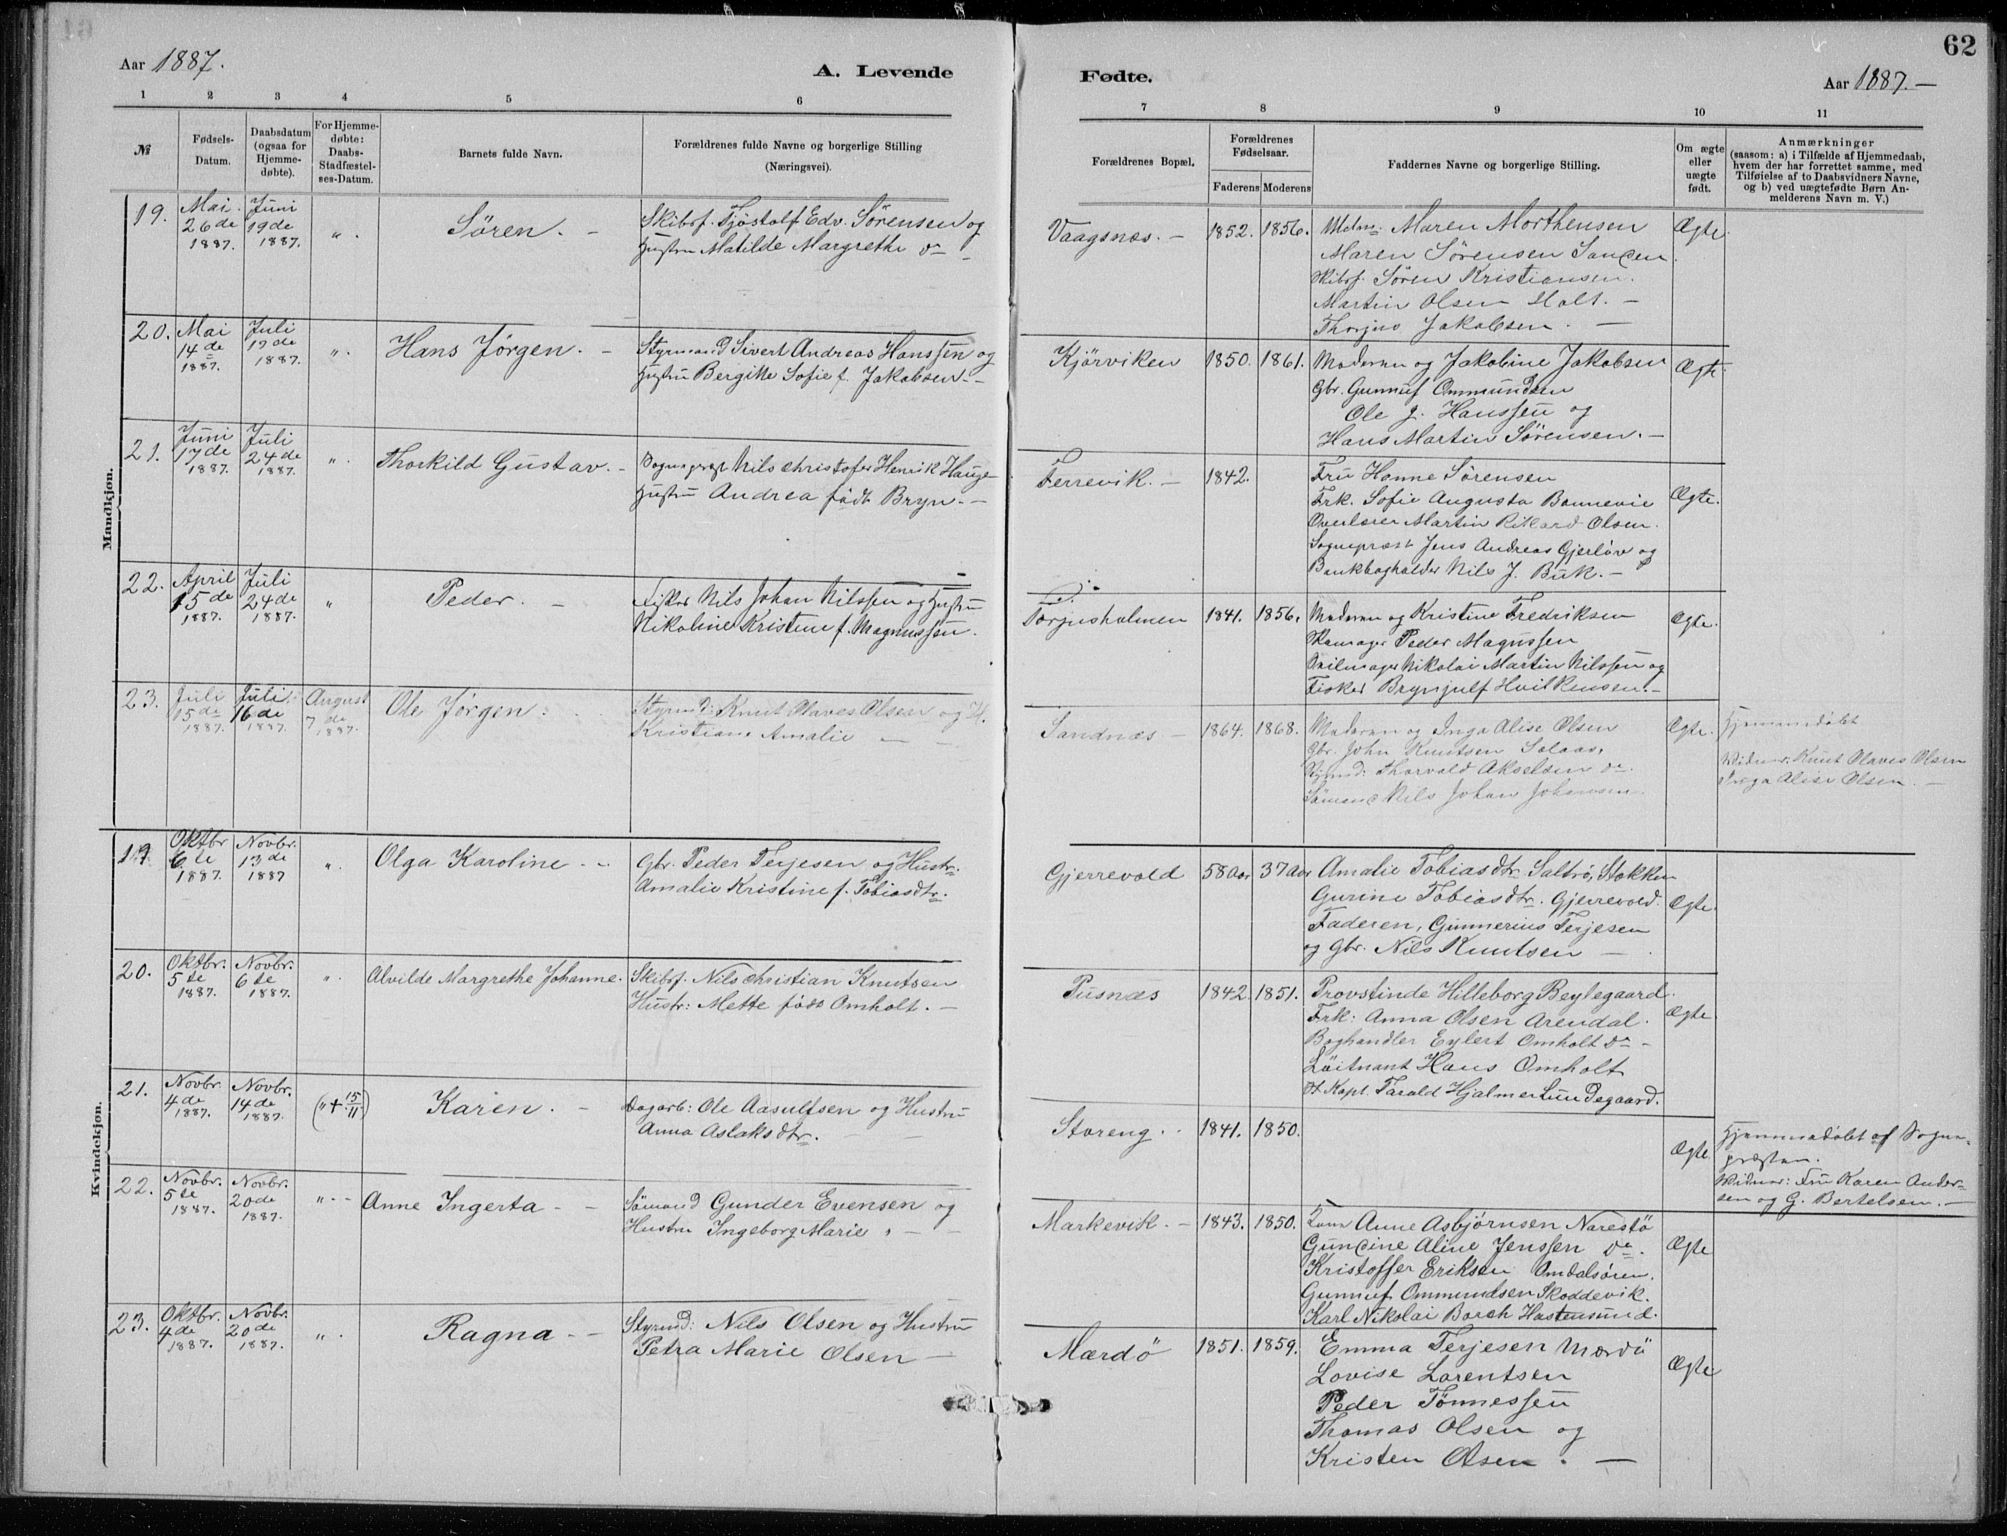 62
Aar 1887.
A. Levende
Fødte.
Aar 1887. —
1 2 3 4 5 6
7 8 9 10 11
№
Fødsels-
Datum.
Daabsdatum
(ogsaa for
Hjemme-
døbte).
For Hjemme-
døbte:
Daabs-
Stadfæstel-
ses-Datum.
Barnets fulde Navn.
Forældrenes fulde Navne og borgerlige Stilling
(Næringsvei).
Forældrenes Bopæl.
Forældrenes
Fødselsaar.
Faderens Moderens
Faddernes Navne og borgerlige Stilling.
Om ægte
eller
uægte
født.
Anmærkninger
(saasom: a) i Tilfælde af Hjemmedaab,
hvem der har forrettet samme, med
Tilføielse af to Daabsvidners Navne,
og b) ved uægtefødte Børn An-
melderens Navn m. V.)
Mandkjøn.
19.
Mai
26de
1887.
Juni
19de
1887.
".
Søren. —
Skibsf. Tjøstolf Edv. Sørensen og
Hustru Matilde Margrethe do
Vaagsnæs. —
1852. 1856.
Madme: Maren Morthensen
Maren Sørensen Sanden
Skibsf. Søren Kristiansen.
Martin Olsen Holt. —
Thorjus Jakobsen. —
Ægte.
20.
Mai
14de
1887.
Juli
17de
1887.
".
Hans Jørgen. —
Styrmand Sivert Andreas Hanssen og
Hustru Bergitte Sofie f. Jakobsen. -
Kjörviken
1850. 1861.
Moderen og Jakobine Jakobsen
Gbr. Gunnuf Ommundsen
Ole J. Hanssen og
Hans Martin Sørensen. —
Ægte
21.
Juni
17de
1887.
Juli
24de
1887.
".
Thorkild Gustav. -
Sognepræst Nils Christofer Henrik Hauge
Hustru Andrea født Bryn. —
Ferrevik. —
1842.
Fru Hanne Sörensen
Frk. Sofie Augusta Bonnevie
Overlærer Martin Rikard Olsen.
Sognepræst Jens Andreas Gjerlöv og
Bankbogholder Nils J. Buk. —
Ægte.
22.
April
15de
1887.
Juli
24de
1887.
"
Peder. —
Fisker Nils Johan Nilssen og Hustru
Nikoline Kristine f. Magnussen.
Torjusholmen
1841. 1856.
Moderen og Kristine Fredriksen
Skomager Peder Magnssen
Seilmager Nikolai Martin Nilssen og
Fisker Brynjulf Hvilkensen. —
Ægte.
23.
Juli
15de
1887.
Juli
16de
1887.
August
7de
1887.
Ole Jørgen.
Styrmd: Knut Olaves Olsen og H.
Kristiane Amalie —
Sandnæs —
1864. 1868.
Moderen og Inga Alise Olsen
Gbr. John Knutsen Solaas,
Styrmd: Thorvald Akselsen do.
Sömand Nils Johan Johansen.
Ægte.
Hjemmedøbt
Vidner: Knut Olaves Olsen
Inga Alise Olsen. —
Kvindekjøn.
19.
Oktbr
6te
1887.
Novbr.
13de
1887
".
Olga Karoline. -
Gbr. Peder Terjesen og Hustr:
Amalie Kristine f. Tobiasdtr.
Gjerrevold
58 Aar 37 Aar
Amalie Tobiasdtr. Saltrö, Stokken
Gurine Tobiasdtr. Gjerrevold.
Faderen, Gunnerius Terjesen
og Gbr. Nils Knutsen —
Ægte.
20.
Oktbr.
5te
1887.
Novbr.
6te
1887.
".
Alvilde Margrethe Johanne.
Skibsf. Nils Christian Knutsen
Hustr: Mette født Omholt. —
Pusnæs
1842. 1851.
Provstinde Hilleborg Beylegaard.
Frk: Anna Olsen Arendal.
Boghandler Eylert Omholt do -
Löitnant Hans Omholt
og Kapt. Tarald Hjalmer Lundegaard.
Ægte
21.
Novbr.
4de
1887.
Novbr.
14de
1887.
(" + 15/11)
Karen. —
Dagarb: Ole Aasultsen og Hustru
Anna Aslaksdtr. —
Storeng.
1841. 1850.
Ægte
Hjemmedöbt af Sogne-
præsten.
Vidner: Fru Karen Ander-
sen og G. Bertelsen. —
22.
Novbr.
5te
1887.
Novbr.
20de
1887.
" -
Anne Ingerta - -
Sömand Gunder Evensen og
Hustru Ingeborg Marie " —
Markevik. —
1843. 1850.
Anne Asbjørnsen Narestö
Gundine Aline Jenssen do.
Kristoffer Eriksen Omdalsören.
Gunnuf Ommundsen Skoddevik.
Karl Nikolai Borch Hastensund.
Ægte
23.
Oktbr.
4de
1887.
Novbr.
20de
1887.
".
Ragna - -
Styrmd: Nils Olsen og Hustru
Petra Marie Olsen —
Mærdö
1851. 1859.
Emma Terjesen Mærdö
Lovise Lorentsen
Peder Tönnessen
Thomas Olsen og
Kristen Olsen. —
Ægte